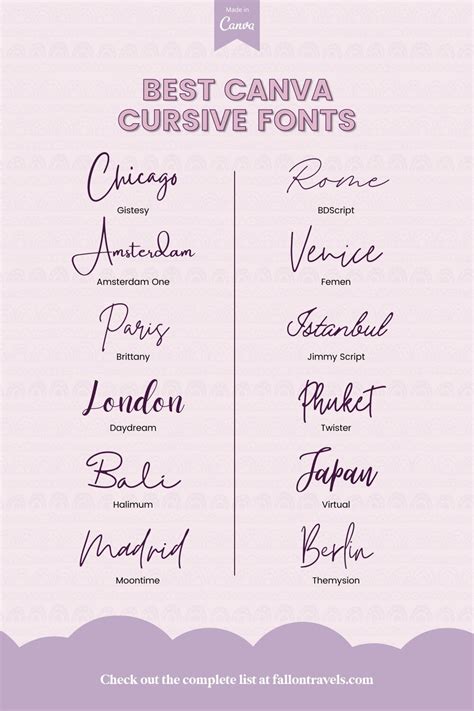 Made in
Canva
BEST CANVA
CURSIVE FONTS
Chicago
Gistesy
Amsterdam
Amsterdam One
Paris
Brittany
London
Daydream
Bali
Halimum
Madrid
Moontime
Rome
BDScript
Venice
Femen
Istanbul
Jimmy Script
Phuket
Twister
Japan
Virtual
Berlin
Themysion
Check out the complete list at fallontravels.com